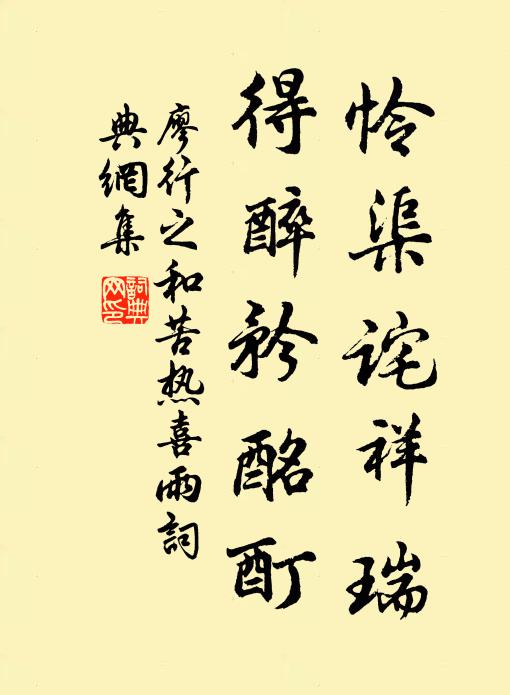 怜渠詫祥瑞
得醉矜酩酊
廖行之和苦热喜雨詞
典網集
詞典网印